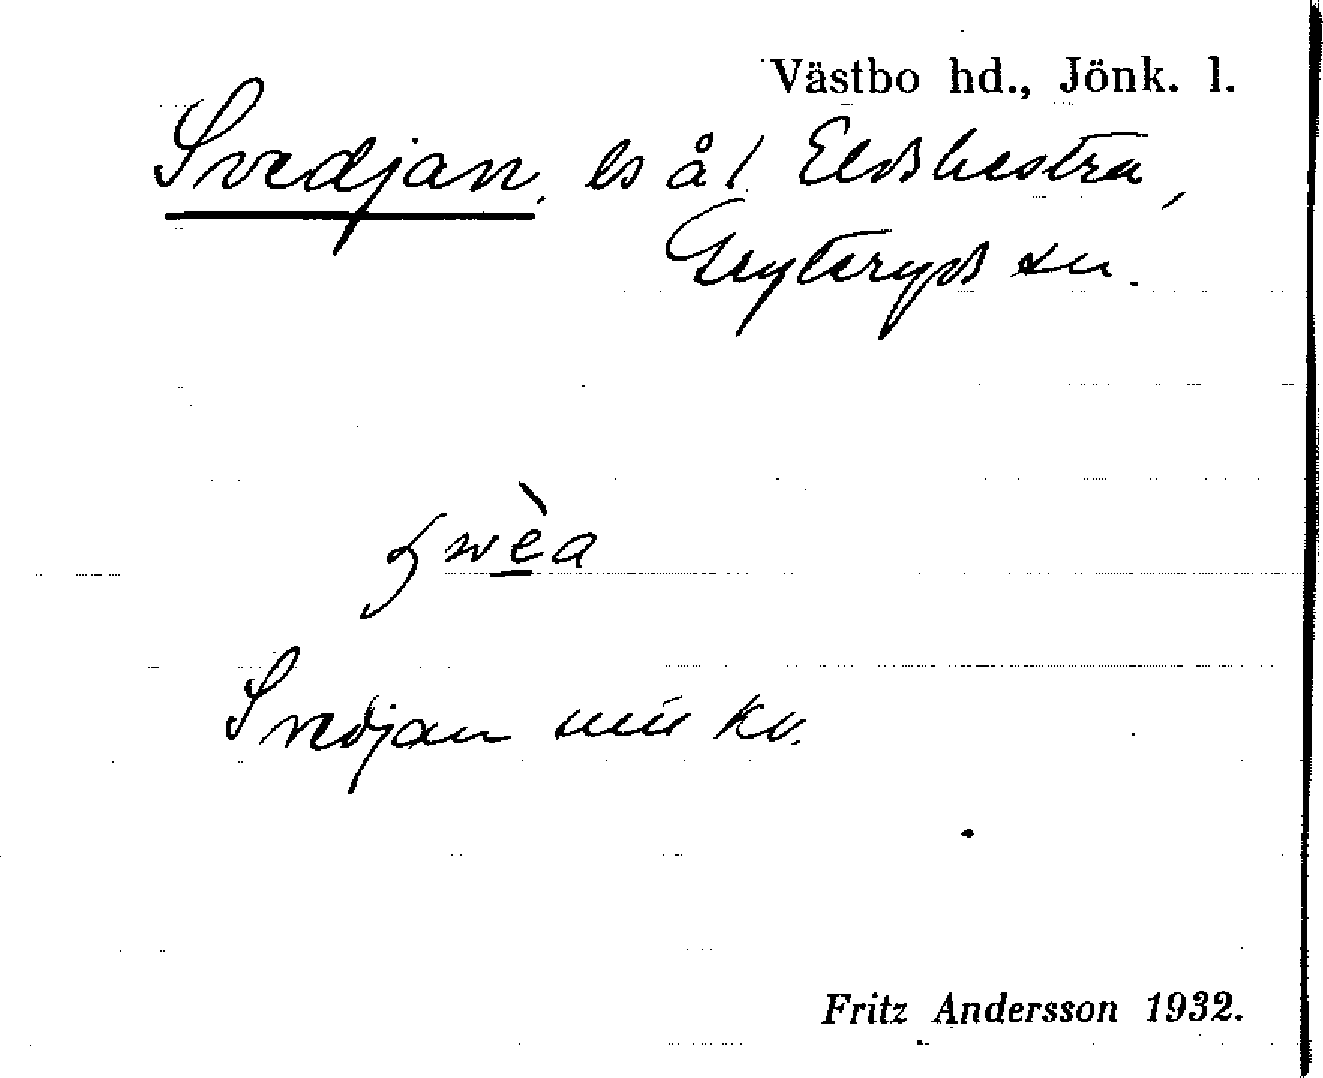 Västbo hd., Jönk. l.
Svedjan, ls å 1 Eldshestra,
Gryteryds sn.
swèa
Svedjan nu kv.
Fritz Andersson 1932.